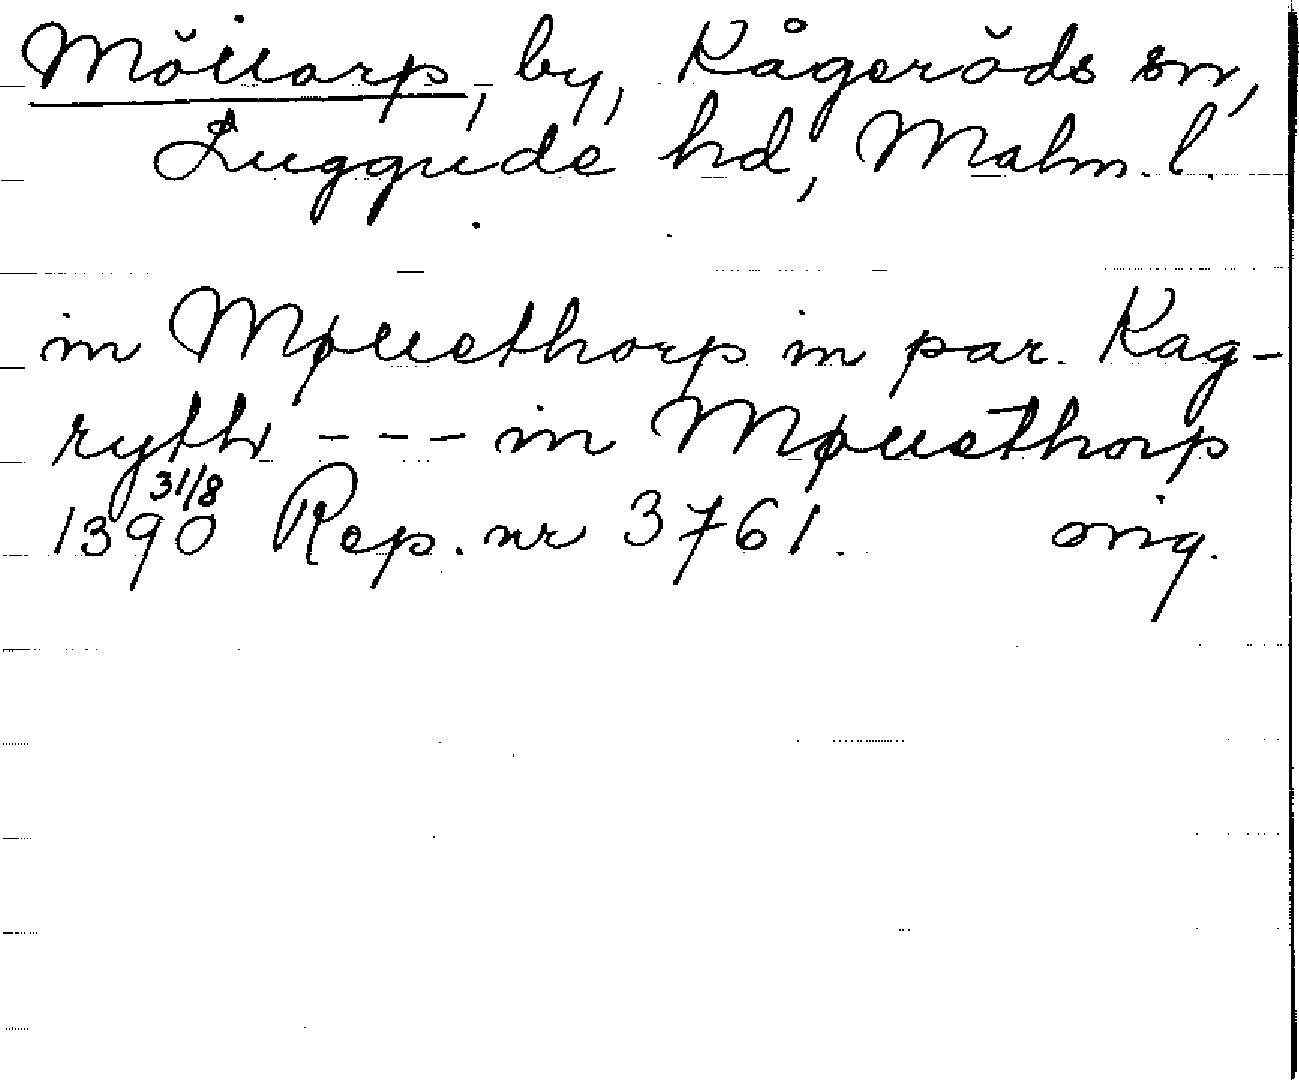 Möllarp, by, Kågeröds sn,
Luggude hd, Malm. l.
in Møllethorp in par. Kag-
ryth - - - in Møllethorp
1390 31/8 Rep. nr 3761. orig.